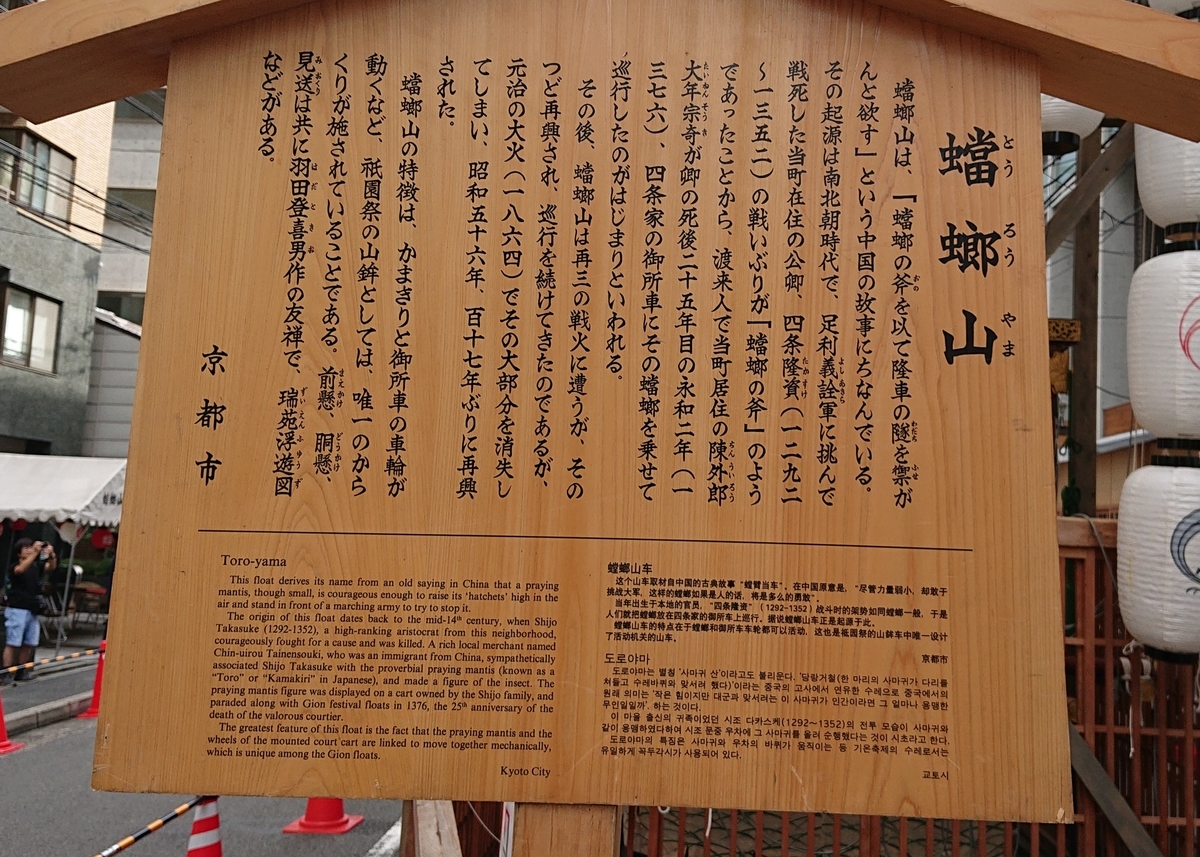 蟷螂山
とうろうやま
蟷螂山は、「蟷螂の斧を以て隆車の隧を禦が
んと欲す」という中国の故事にちなんでいる。
その起源は南北朝時代で、足利義詮軍に挑んで
戦死した当町在住の公卿、四条隆資(一二九二
〜一三五二)の戦いぶりが「蟷螂の斧」のよう
であったことから、渡来人で当町居住の陳外郎
大年宗奇が卿の死後二十五年目の永和二年(一
三七六)、四条家の御所車にその蟷螂を乗せて
巡行したのがはじまりといわれる。
その後、蟷螂山は再三の戦火に遭うが、その
つど再興され、巡行を続けてきたのであるが、
元治の大火(一八六四)でその大部分を消失し
てしまい、昭和五十六年、百十七年ぶりに再興
された。
蟷螂山の特徴は、かまきりと御所車の車輪が
動くなど、祇園祭の山鉾としては、唯一のから
くりが施されていることである。前懸、胴懸、
見送は共に羽田登喜男作の友禅で、瑞苑浮遊図
などがある。
京都市
Toro-yama
This float derives its name from an old saying in China that a praying
mantis, though small, is courageous enough to raise its 'hatchets' high in the
air and stand in front of a marching army to try to stop it.
The origin of this float dates back to the mid-14th century, when Shijo
Takasuke (1292-1352), a high-ranking aristocrat from this neighborhood,
courageously fought for a cause and was killed. A rich local merchant named
Chin-uirou Tainensouki, who was an immigrant from China, sympathetically
associated Shijo Takasuke with the proverbial praying mantis (known as a
"Toro" or "Kamakiri" in Japanese), and made a figure of the insect. The
praying mantis figure was displayed on a cart owned by the Shijo family, and
paraded along with Gion festival floats in 1376, the 25th anniversary of the
death of the valorous courtier.
The greatest feature of this float is the fact that the praying mantis and the
wheels of the mounted court cart are linked to move together mechanically,
which is unique among the Gion floats.
Kyoto City
螳螂山车
这个山车取材自中国的古典故事“螳臂当车”。在中国原意是,“尽管力量弱小,却敢于
挑战大军,这样的螳螂如果是人的话,将是多么的勇敢”。
当年出生于本地的官员,“四条隆资”(1292-1352)战斗时的架势如同螳螂一般,于是
人们就把螳螂放在四条家的御所车上巡行。据说螳螂山车正是起源于此。
螳螂山车的特点在于螳螂和御所车车轮都可以活动,这也是祗园祭的山鉾车中唯一设计
了活动机关的山车。
京都市
도로야마
도로야마는 별칭 '사마귀 산'이라고도 불리운다. '당랑거철(한 마리의 사마귀가 다리를
쳐들고 수레바퀴와 맞서려 했다)'이라는 중국의 고사에서 연유한 수레으로 중국에서의
원래 의미는 '작은 힘이지만 대군과 맞서려는 이 사마귀가 인간이라면 그 얼마나 용맹한
무인일일까'. 하는 것이다.
이 마을 출신의 귀족이었던 시조 다카스케(1292~1352)의 전투 모습이 사마귀와
같이 용맹하였다하여 시조 문중 우차에 그 사마귀를 올려 순행했다는 것이 시초라고 한다.
도로야마의 특징은 사마귀와 우차의 바퀴가 움직이는 등 기온축제의 수레로서는
유일하게 꼭두각시가 사용되어 있다.
교토시